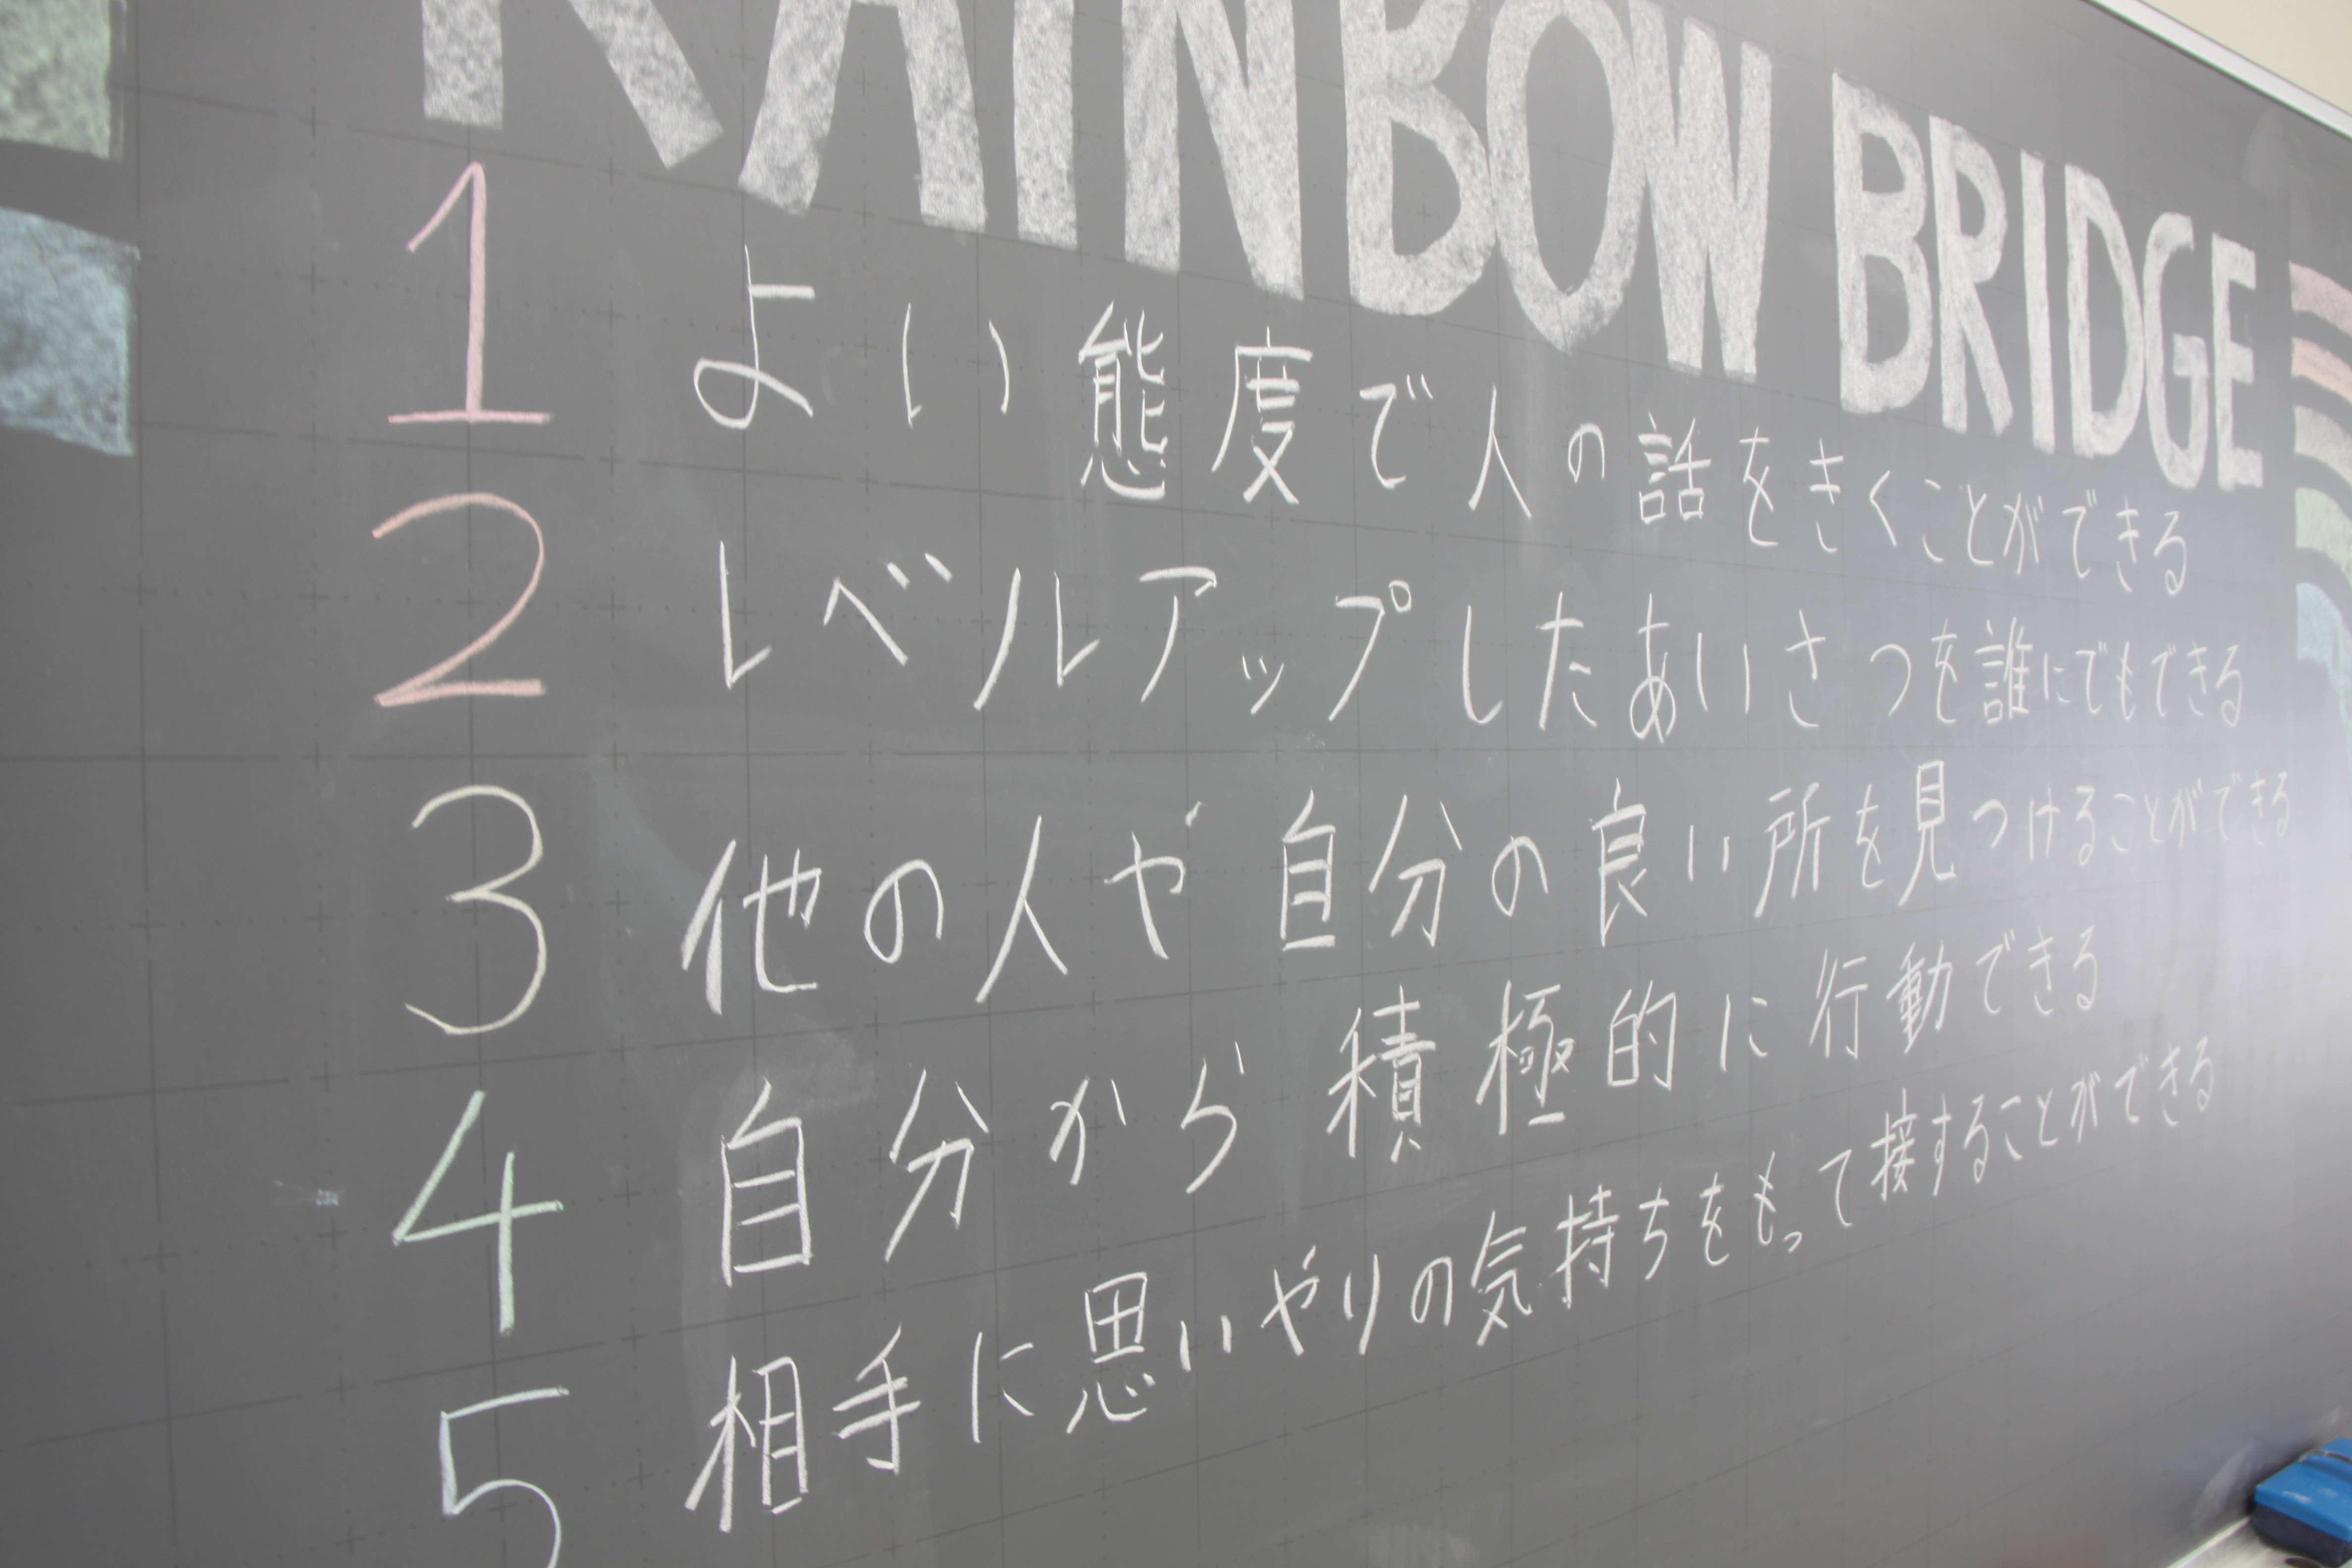 RAINBOW BRIDGE
1 よい態度で人の話をきくことができる
2 レベルアップしたあいさつを誰にでもできる
3 他の人や自分の良い所を見つけることができる
4 自分から積極的に行動できる
5 相手に思いやりの気持ちをもって接することができる